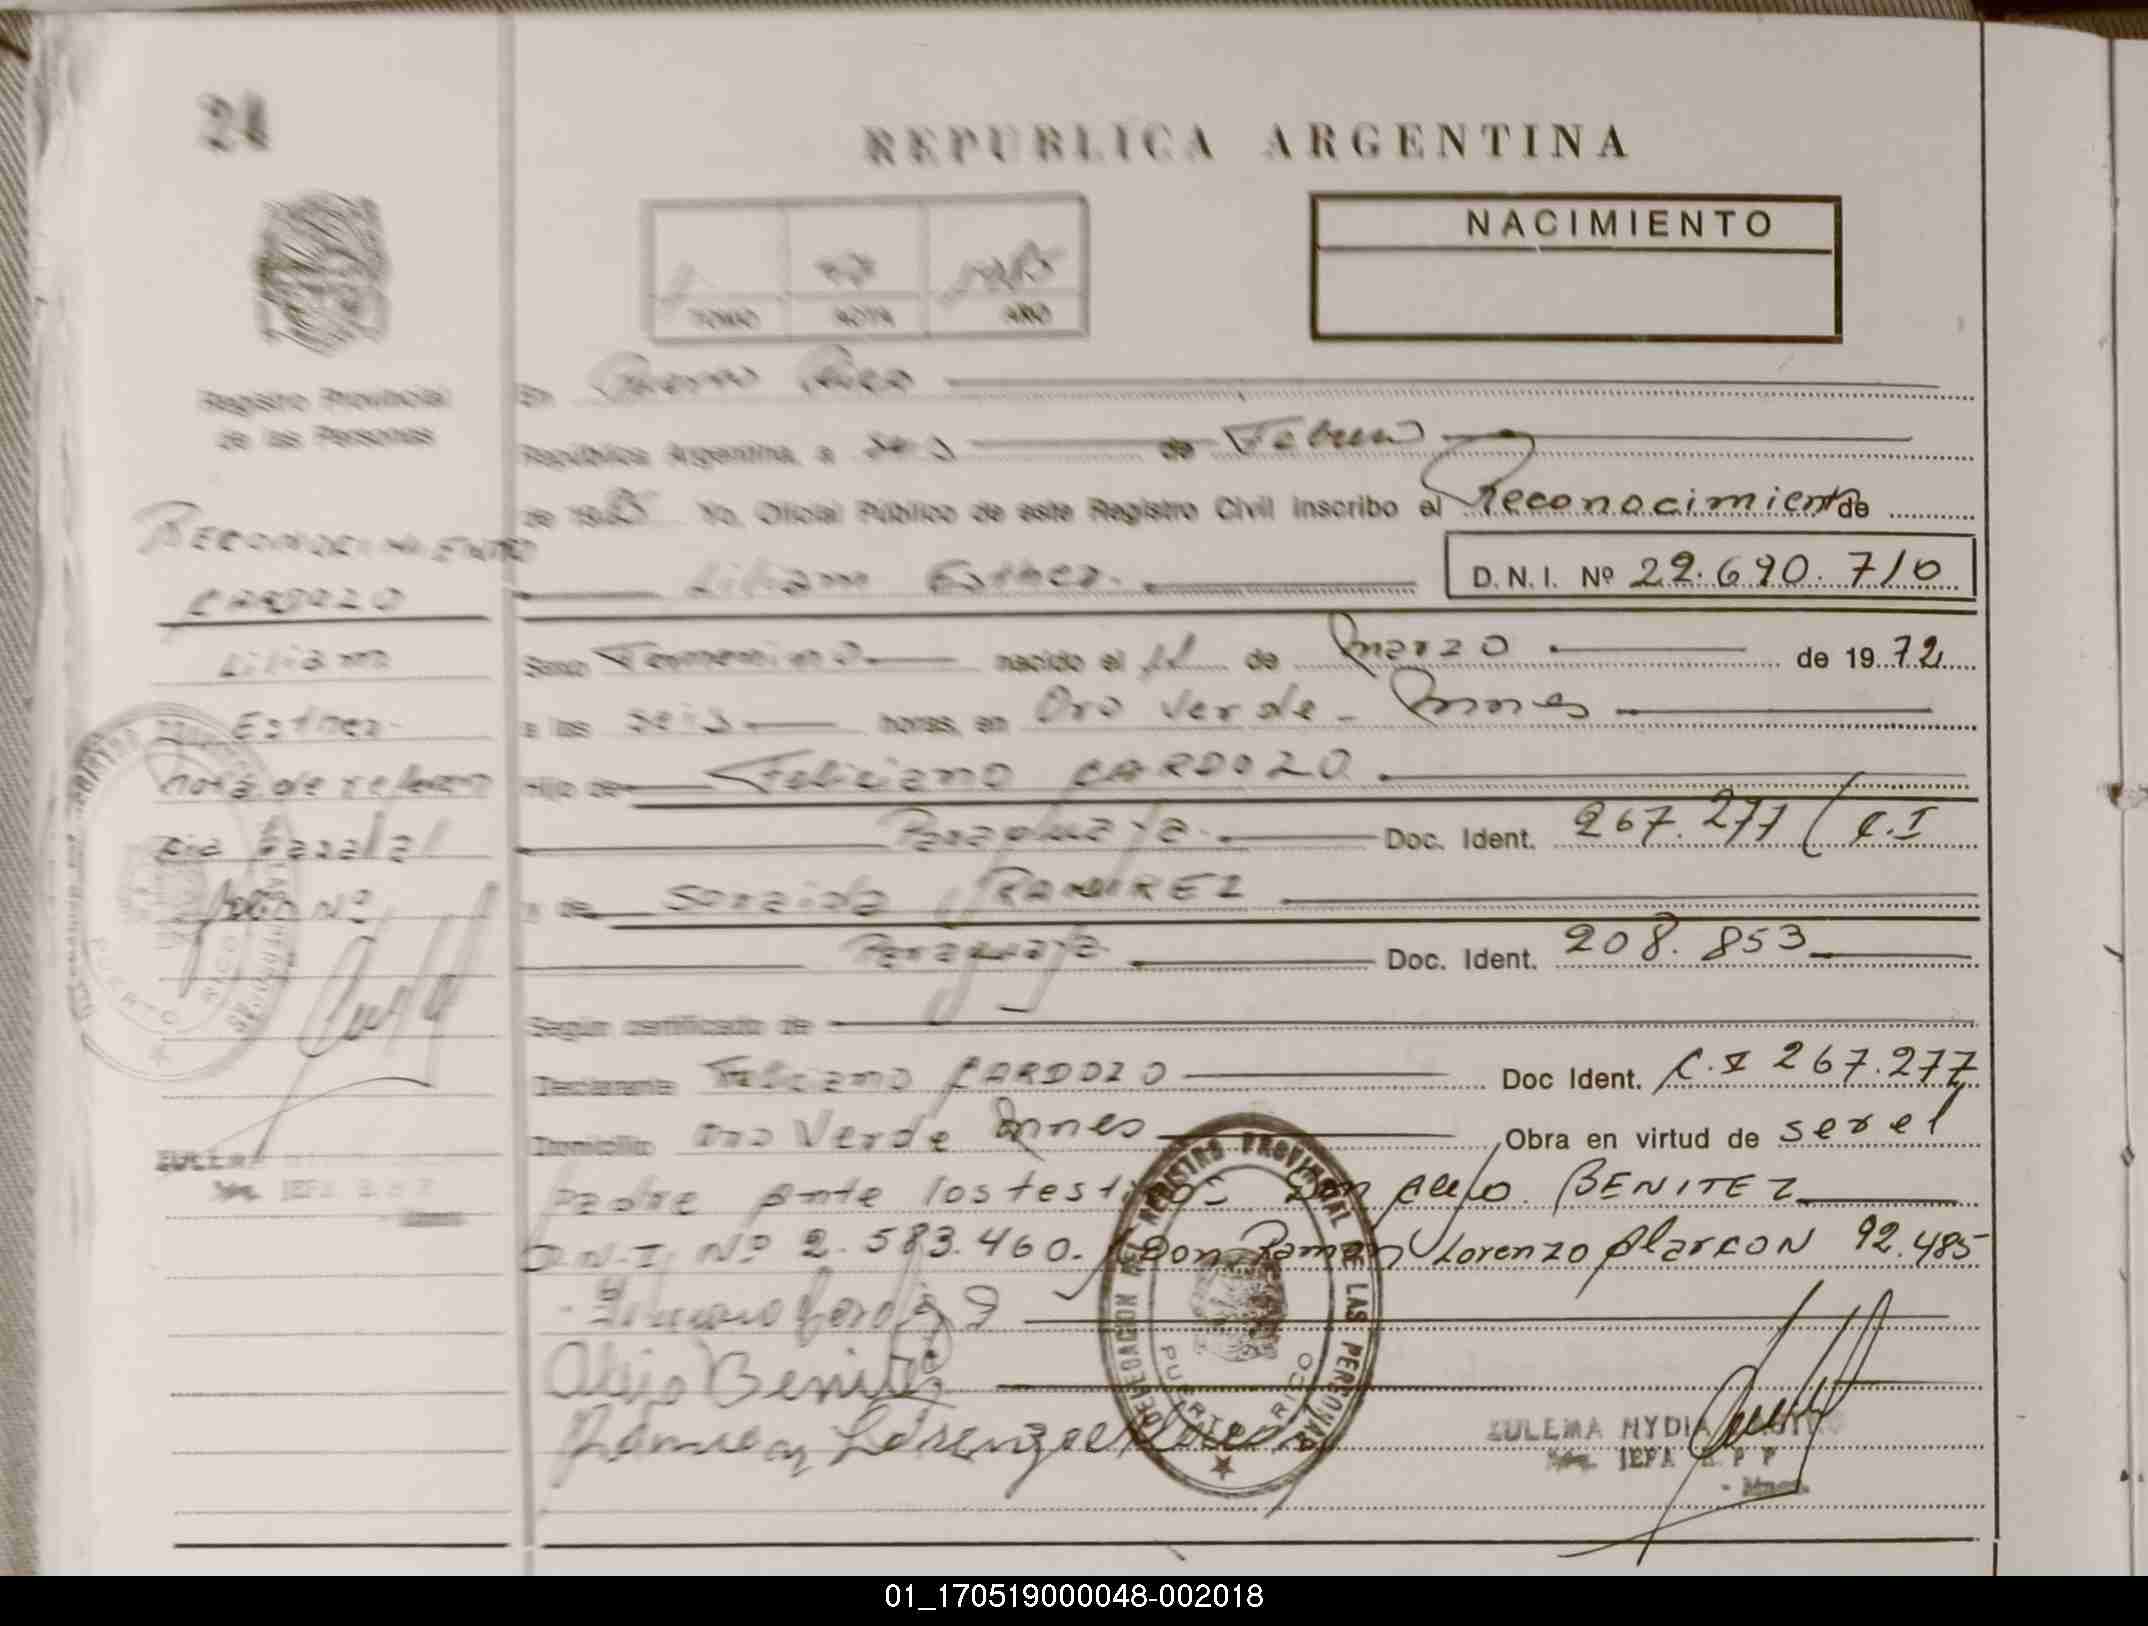 24
REPUBLICA ARGENTINA
NACIMIENTO
1985
TOMO ACTA AÑO
Registro Provincial
de las Personas
En Puerto Rico
República Argentina, a seis de Febrero
de 1985 Yo, Oficial Público de este Registro Civil inscribo el Reconocimiento de
Liliam Esther. D.N.I. Nº 22.690.710
Sexo Femenino nacido el 11 de marzo de 1972
a las seis horas, en Oro Verde - Mnes
Hijo de Feliciano CARDOZO
Paraguaya. Doc. Ident. 267.277 / C.I
y de Soraida RAMIREZ
Paraguaya Doc. Ident. 208.853
Según certificado de
Declarante Feliciano CARDOZO Doc Ident. C.I 267.277
Domicilio Oro Verde Mnes Obra en virtud de ser el
padre ante los testigos Don Alejo BENITEZ
D.N.I. Nº 2.583.460. Don Ramon Lorenzo Alarcon 92.485
Feliciano Cardozo
Alejo Benitez
Ramon Lorenzo Alarcon
RECONOCIMIENTO
CARDOZO
Liliam
Esther
nota de referen
cia
Nº
ZULEMA
JEFA
DELEGACION DEL REGISTRO PROVINCIAL DE LAS PERSONAS
PUERTO RICO
ZULEMA NYDIA
JEFA R P P
Mnes.
01_170519000048-002018